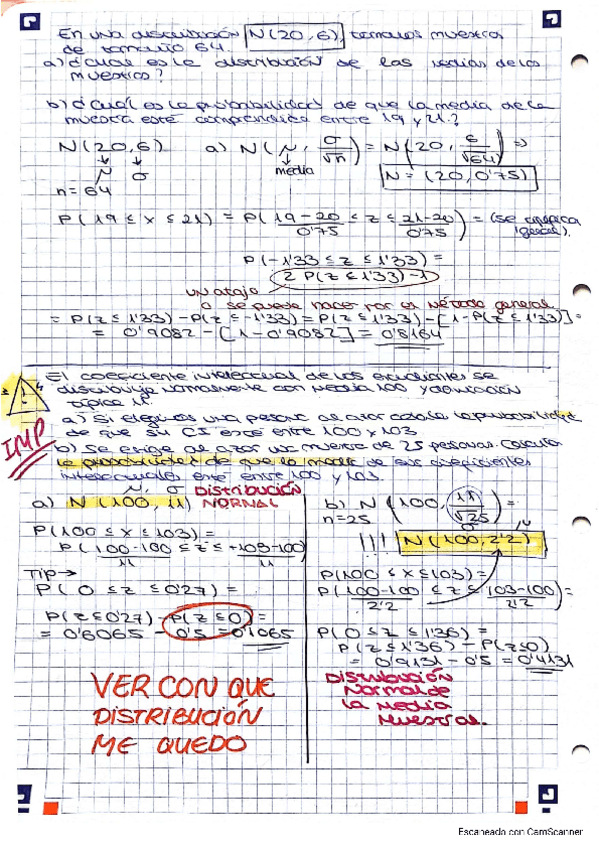 En una distribución N(20,6), tomamos muestras
de tamaño 64.
a) ¿Cuál es la distribución de las medias de las
muestras?
b) ¿Cuál es la probabilidad de que la media de la
muestra esté comprendida entre 19 y 21?
N(20,6) a) N(μ, σ/√n) = N(20, 6/√64) ⇒
μ σ media N = (20, 0'75)
n = 64
P(19 ≤ x ≤ 21) = P(19-20/0'75 ≤ z ≤ 21-20/0'75) = (se tipifica
igual).
P(-1'33 ≤ z ≤ 1'33) =
2 P(z ≤ 1'33) - 1
un atajo
o se puede hacer por el método general
= P(z ≤ 1'33) - P(z ≤ -1'33) = P(z ≤ 1'33) - [1 - P(z ≤ 1'33)] =
= 0'9082 - [1 - 0'9082] = 0'8164
El coeficiente intelectual de los estudiantes se
distribuye normalmente con media 100 y desviación
típica 11.
IMP
a) Si elegimos una persona al azar calcula la probabilidad
de que su CI esté entre 100 y 103
b) Se elige al azar una muestra de 25 personas. Calcula
la probabilidad de que la media de sus coeficientes
intelectuales esté entre 100 y 103.
μ, σ DISTRIBUCIÓN
a) N(100, 11) NORMAL
P(100 ≤ x ≤ 103) =
P(100-100/11 ≤ z ≤ 103-100/11)
Tip →
P(0 ≤ z ≤ 0'27) =
P(z ≤ 0'27) - P(z ≤ 0) =
= 0'6065 - 0'5 = 0'1065
VER CON QUE
DISTRIBUCIÓN
ME QUEDO
b) N(100, 11/√25) =
n=25
!!! N(100, 2'2)
P(100 ≤ x ≤ 103) =
P(100-100/2'2 ≤ z ≤ 103-100/2'2) =
P(0 ≤ z ≤ 1'36) =
P(z ≤ 1'36) - P(z ≤ 0)
= 0'9131 - 0'5 = 0'4131
Distribución
Normal de
la media
muestral.
Escaneado con CamScanner